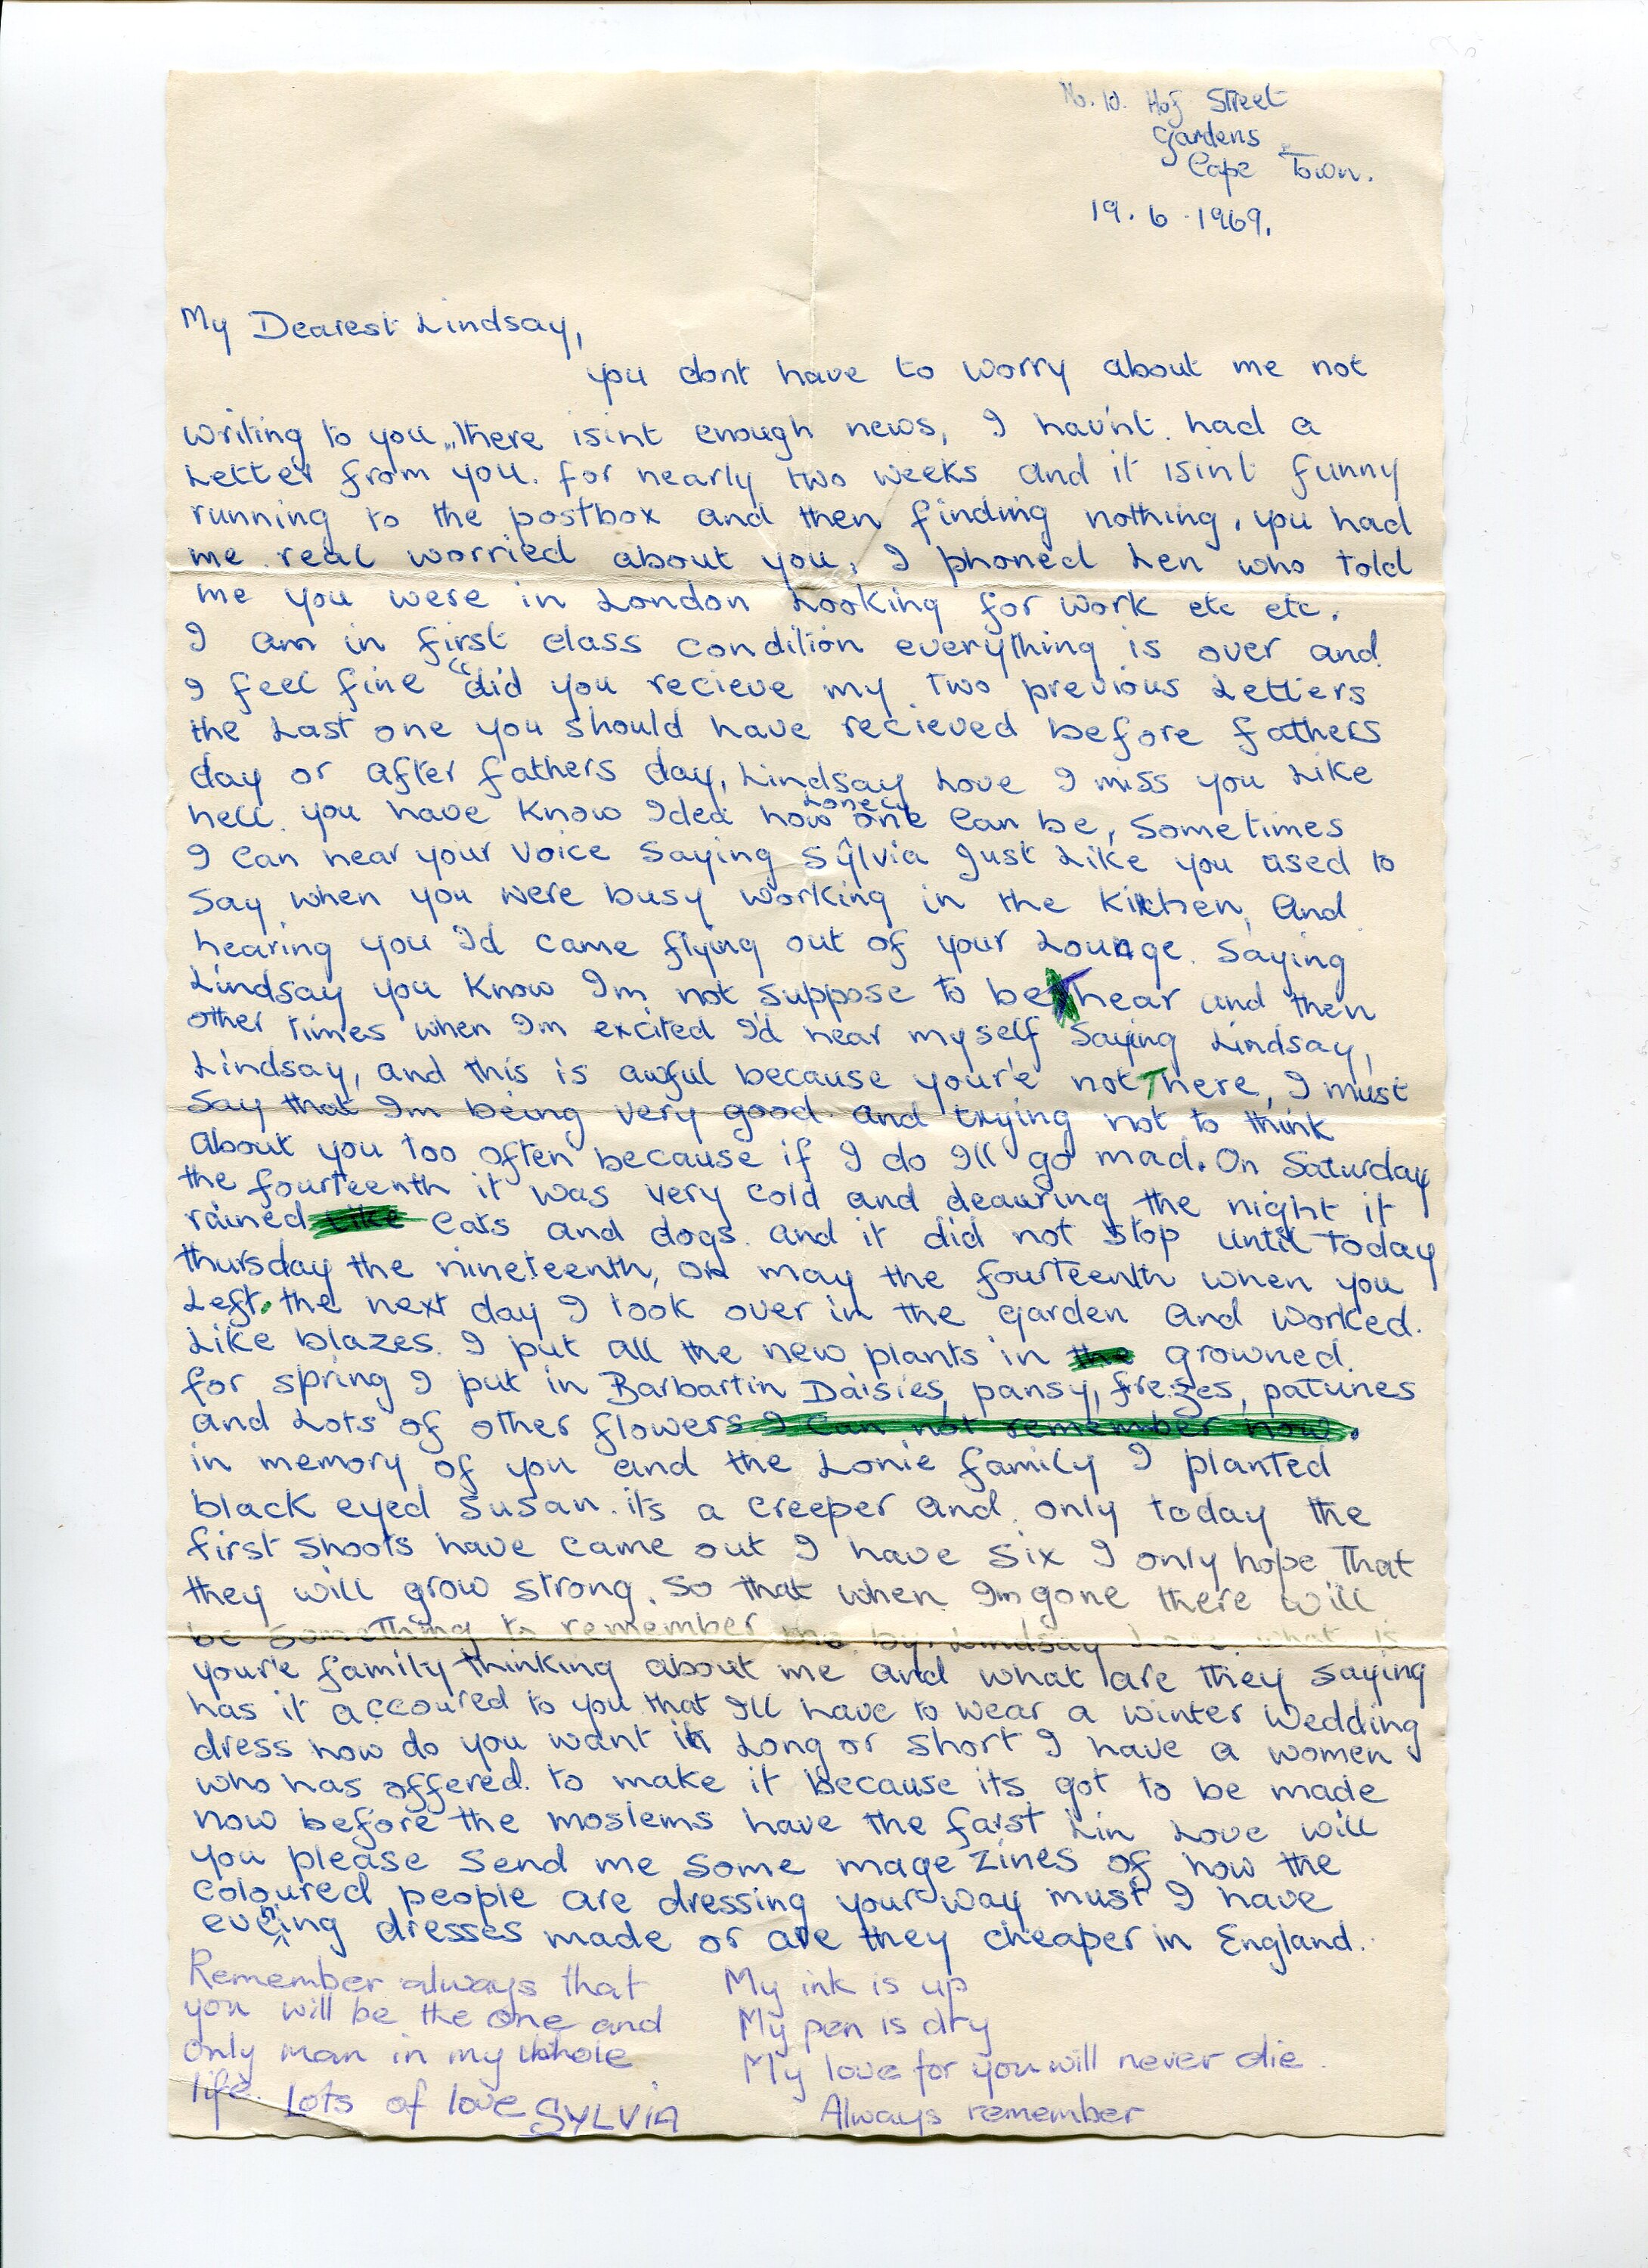 No. 10. Hof Street
Gardens
Cape Town.
19. 6. 1969.
My Dearest Lindsay,
you dont have to worry about me not
writing to you, there isint enough news, I hav'nt. had a
Letter from you. for nearly two weeks and it isint funny
running to the postbox and then finding nothing, you had
me real worried about you, I phoned Len who told
me you were in London Looking for work etc etc.
I am in first class condition everything is over and
I feel fine "did you recieve my two previous Letters
the Last one you should have recieved before fathers
day or after fathers day, Lindsay Love I miss you Like
hell. you have know Idea how Lonely one can be, sometimes
I can hear your voice saying Sylvia Just Like you used to
say when you were busy working in the kitchen, And
hearing you I'd came flying out of your Lounge. saying
Lindsay you know Im not suppose to be hear and then
other times when Im excited I'd hear myself saying Lindsay,
Lindsay, and this is awful because your'e not There, I must
say that Im being very good. and trying not to think
about you too often because if I do Ill go mad. On Saturday
the fourteenth it was very cold and deauring the night it
rained like cats and dogs. and it did not stop until today
thursday the nineteenth, on may the fourteenth when you
Left. the next day I took over in the garden and worked.
Like blazes. I put all the new plants in the growned.
for spring I put in Barbartin Daisies, pansy, frezes, patunes
and Lots of other flowers I can not remember now.
in memory of you and the Lonie family I planted
black eyed susan. its a creeper and. only today the
first shoots have came out I have six I only hope That
they will grow strong. so that when Im gone there will
be something to remember me by. Lindsay Love. what is
your'e family thinking about me and what are they saying
has it accoured to you that Ill have to wear a winter wedding
dress now do you want it Long or short I have a women
who has offered. to make it because its got to be made
now before the moslems have the fast Lin Love will
you please send me some magezines of how the
coloured people are dressing your way must I have
evening dresses made or are they cheaper in England.
Remember always that
you will be the one and
only man in my whole
life. Lots of love SYLVIA
My ink is up
My pen is dry
My love for you will never die.
Always remember